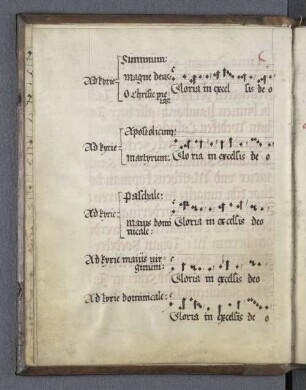 Summum:
Ad kyrie magne deus
O christe pie
Gloria in excel sis de o
Apostolicum:
Ad kyrie
martyrum:
Glo ria in excelsis de o
Paschale:
Ad kyrie
maius domi
nicale:
Gloria in excelsis deo
Ad kyrie maius uir
ginum:
Gloria in excelsis deo
Ad kyrie dominicale:
Gloria in excelsis de o